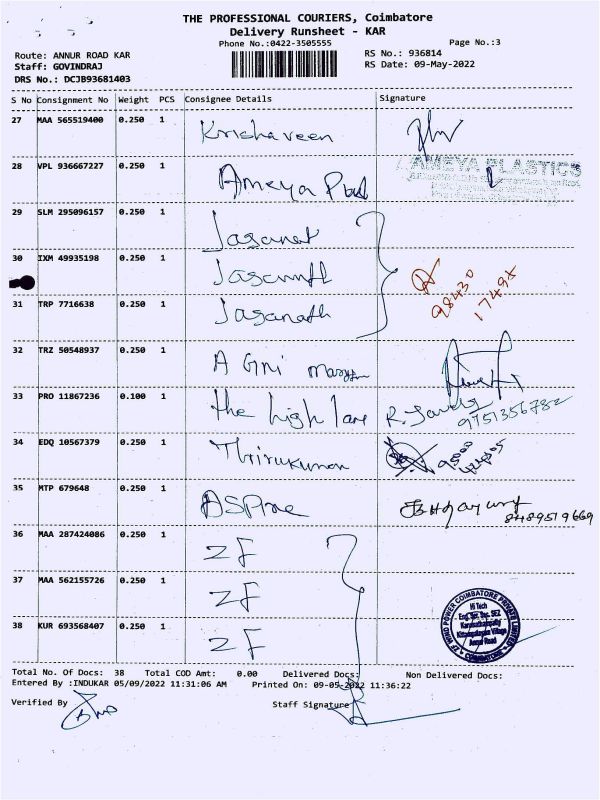 THE PROFESSIONAL COURIERS, Coimbatore
Delivery Runsheet - KAR
Phone No.:0422-3505555
Page No.:3
Route: ANNUR ROAD KAR
RS No.: 936814
Staff: GOVINDRAJ
RS Date: 09-May-2022
DRS No.: DCJB93681403
S No Consignment No Weight PCS Consignee Details Signature
27 MAA 565519400 0.250 1 Krishaveen
28 VPL 936667227 0.250 1 Ameya AMEYA PLASTICS
29 SLM 295096157 0.250 1
30 IXM 49935198 0.250 1
31 TRP 7716638 0.250 1 Jasanath
98430
32 TRZ 50548937 0.250 1 A Gni
33 PRO 11867236 0.100 1 the high lane
9751356782
34 EDQ 10567379 0.250 1 Thirukumaran
35 MTP 679648 0.250 1
8489519669
36 MAA 287424086 0.250 1 ZF
37 MAA 562155726 0.250 1 ZF
38 KUR 693568407 0.250 1 ZF
ZF WIND POWER COIMBATORE PRIVATE LIMITED
Hi Tech
Eng. Ser. Sec. SEZ
Annur Road
COIMBATORE
Total No. Of Docs: 38 Total COD Amt: 0.00 Delivered Docs: Non Delivered Docs:
Entered By :INDUKAR 05/09/2022 11:31:06 AM Printed On: 09-05-2022 11:36:22
Verified By
Staff Signature